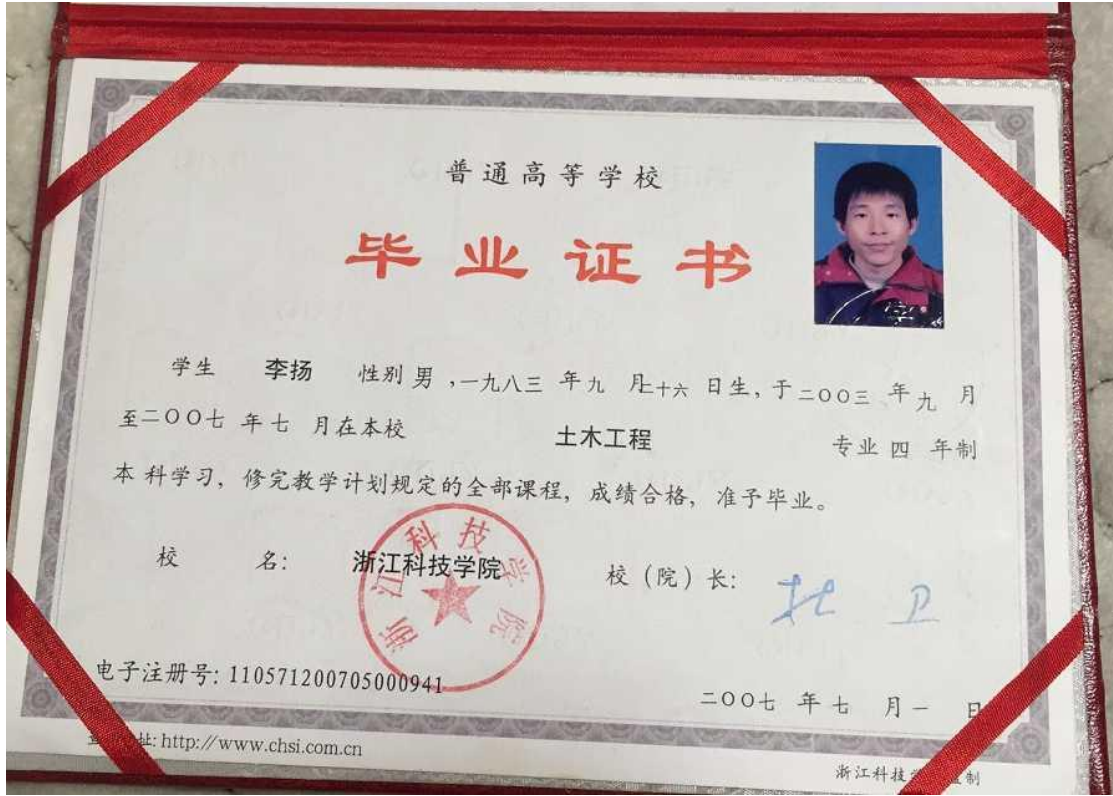 普通高等学校
毕业证书
学生 李扬 性别 男 ，一九八三 年 九 月 十六 日生，于 二〇〇三 年 九 月
至二〇〇七 年 七 月在本校 土木工程 专业 四 年制
本 科学习，修完教学计划规定的全部课程，成绩合格，准予毕业。
校 名： 浙江科技学院 校（院）长：
浙江科技学院
电子注册号：110571200705000941
二〇〇七 年 七 月 一 日
址：http://www.chsi.com.cn
浙江科技 制